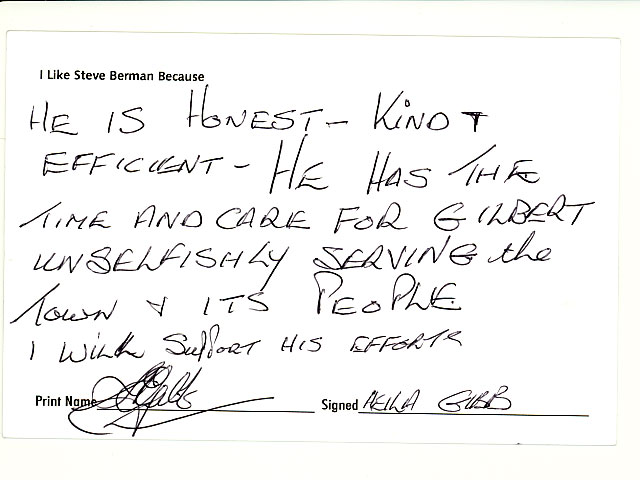 I Like Steve Berman Because
HE IS HONEST - KIND +
EFFICIENT - HE HAS THE
TIME AND CARE FOR GILBERT
UNSELFISHLY SERVING the
TOWN & ITS PEOPLE
I WILL SUPPORT HIS EFFORTS
Print Name
Signed GIBB